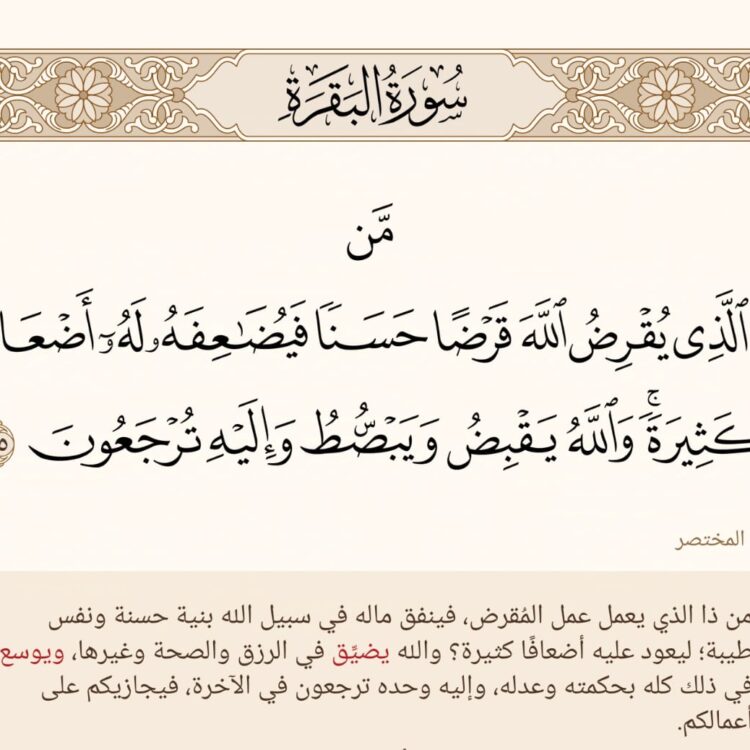 سُورَةُ البَقَرَةِ
مَّن
الَّذِى يُقْرِضُ ٱللَّهَ قَرْضًا حَسَنًا فَيُضَٰعِفَهُۥ لَهُۥٓ أَضْعَا
كَثِيرَةً ۚ وَٱللَّهُ يَقْبِضُ وَيَبْصُّطُ وَإِلَيْهِ تُرْجَعُونَ
المختصر
من ذا الذي يعمل عمل المُقرض، فينفق ماله في سبيل الله بنية حسنة ونفس
طيبة؛ ليعود عليه أضعافًا كثيرة؟ والله يضيِّق في الرزق والصحة وغيرها، ويوسع
في ذلك كله بحكمته وعدله، وإليه وحده ترجعون في الآخرة، فيجازيكم على
أعمالكم.